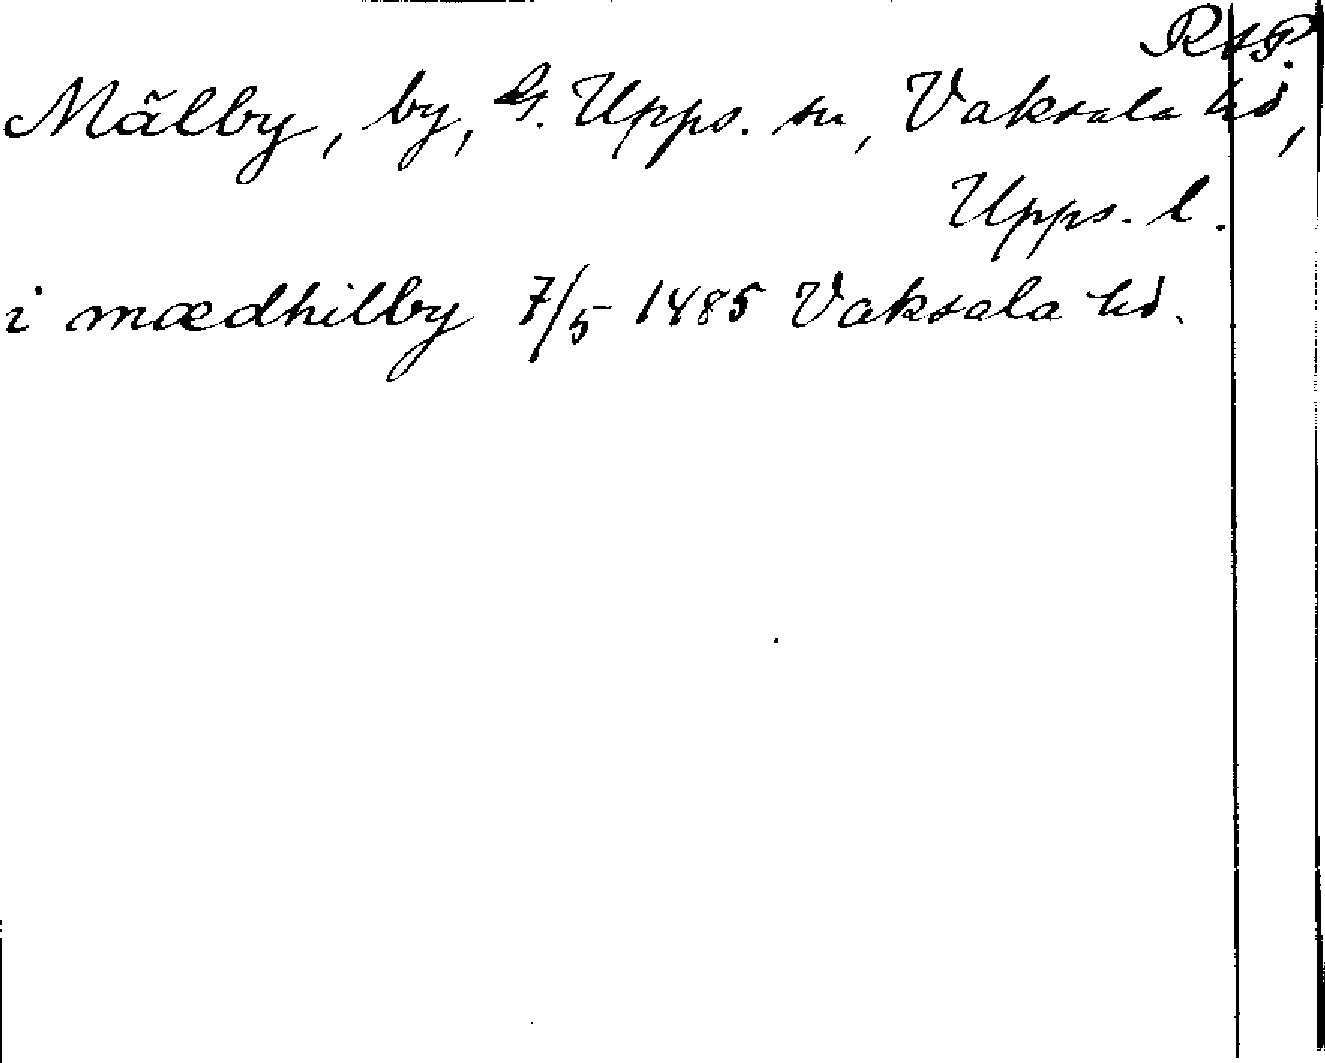 RAP.
Mälby, by, G. Upps. sn, Vaksala hd,
Upps. l.
i mædhilby 7/5 1485 Vaksala hd.